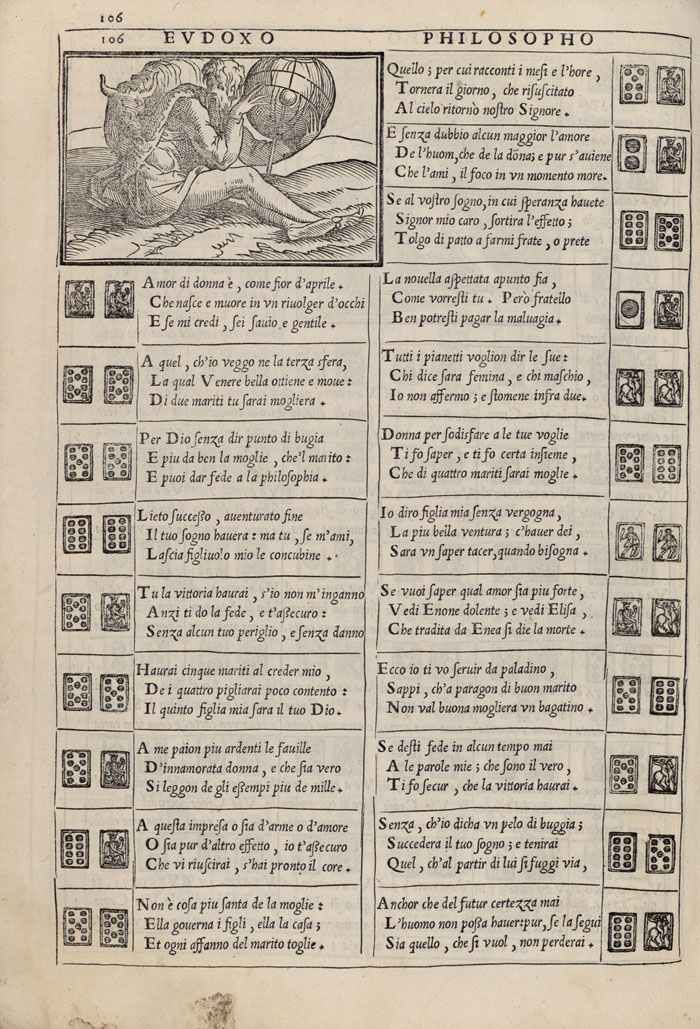 106
106 EVDOXO PHILOSOPHO
Quello ; per cui racconti i mesi e l'hore ,
Tornera il giorno , che risuscitato
Al cielo ritornò nostro Signore .
E senza dubbio alcun maggior l'amore
De l'huom, che de la dōna; e pur s'auiene
Che l'ami , il foco in vn momento more.
Se al vostro sogno, in cui speranza hauete
Signor mio caro , sortira l'effetto ;
Tolgo di patto a farmi frate , o prete
Amor di donna è , come fior d'aprile .
Che nasce e muore in vn riuolger d'occhi
E se mi credi , sei sauio e gentile .
A quel , ch'io veggo ne la terza sfera,
La qual Venere bella ottiene e moue :
Di due mariti tu sarai mogliera .
Per Dio senza dir punto di bugia
E piu da ben la moglie , che'l marito :
E puoi dar fede a la philosophia .
Lieto successo , auenturato fine
Il tuo sogno hauera : ma tu , se m'ami,
Lascia figliuolo mio le concubine .
Tu la vittoria haurai , s'io non m'inganno
Anzi ti do la fede , e t'assecuro :
Senza alcun tuo periglio , e senza danno
Haurai cinque mariti al creder mio ,
De i quattro pigliarai poco contento :
Il quinto figlia mia sara il tuo Dio .
A me paion piu ardenti le fauille
D'innamorata donna , e che sia vero
Si leggon de gli essempi piu de mille .
A questa impresa o sia d'arme o d'amore
O sia pur d'altro effetto , io t'assecuro
Che vi riuscirai , s'hai pronto il core .
Non è cosa piu santa de la moglie :
Ella gouerna i figli , ella la casa ;
Et ogni affanno del marito toglie .
La nouella aspettata apunto fia ,
Come vorresti tu . Però fratello
Ben potresti pagar la maluagia .
Tutti i pianetti voglion dir le sue :
Chi dice sara femina , e chi maschio ,
Io non affermo ; e stomene infra due.
Donna per sodisfare a le tue voglie
Ti fo saper , e ti fo certa insieme ,
Che di quattro mariti sarai moglie .
Io diro figlia mia senza vergogna,
La piu bella ventura ; c'hauer dei ,
Sara vn saper tacer, quando bisogna .
Se vuoi saper qual amor sia piu forte ,
Vedi Enone dolente ; e vedi Elisa ,
Che tradita da Enea si die la morte .
Ecco io ti vo seruir da paladino ,
Sappi , ch'a paragon di buon marito
Non val buona mogliera vn bagatino .
Se desti fede in alcun tempo mai
A le parole mie ; che sono il vero ,
Ti fo secur , che la vittoria haurai .
Senza , ch'io dicha vn pelo di buggia ;
Succedera il tuo sogno ; e tenirai
Quel , ch'al partir di lui si fuggi via ,
Anchor che del futur certezza mai
L'huomo non possa hauer: pur, se la segui
Sia quello , che si vuol , non perderai .